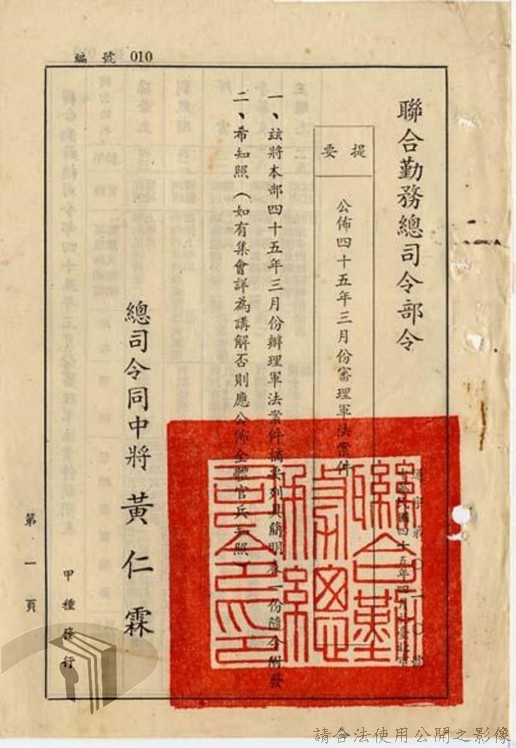 編號 010
聯合勤務總司令部令
提要
公佈四十五年三月份審理軍法案件
一、茲將本部四十五年三月份辦理軍法案件摘要列具簡明表一份隨令附發
二、希知照（如有集會詳為講解否則應公佈全體官兵知照）
總司令同中將 黃仁霖
甲種發行
第一頁
聯合勤
務總司
令部
請合法使用公開之影像